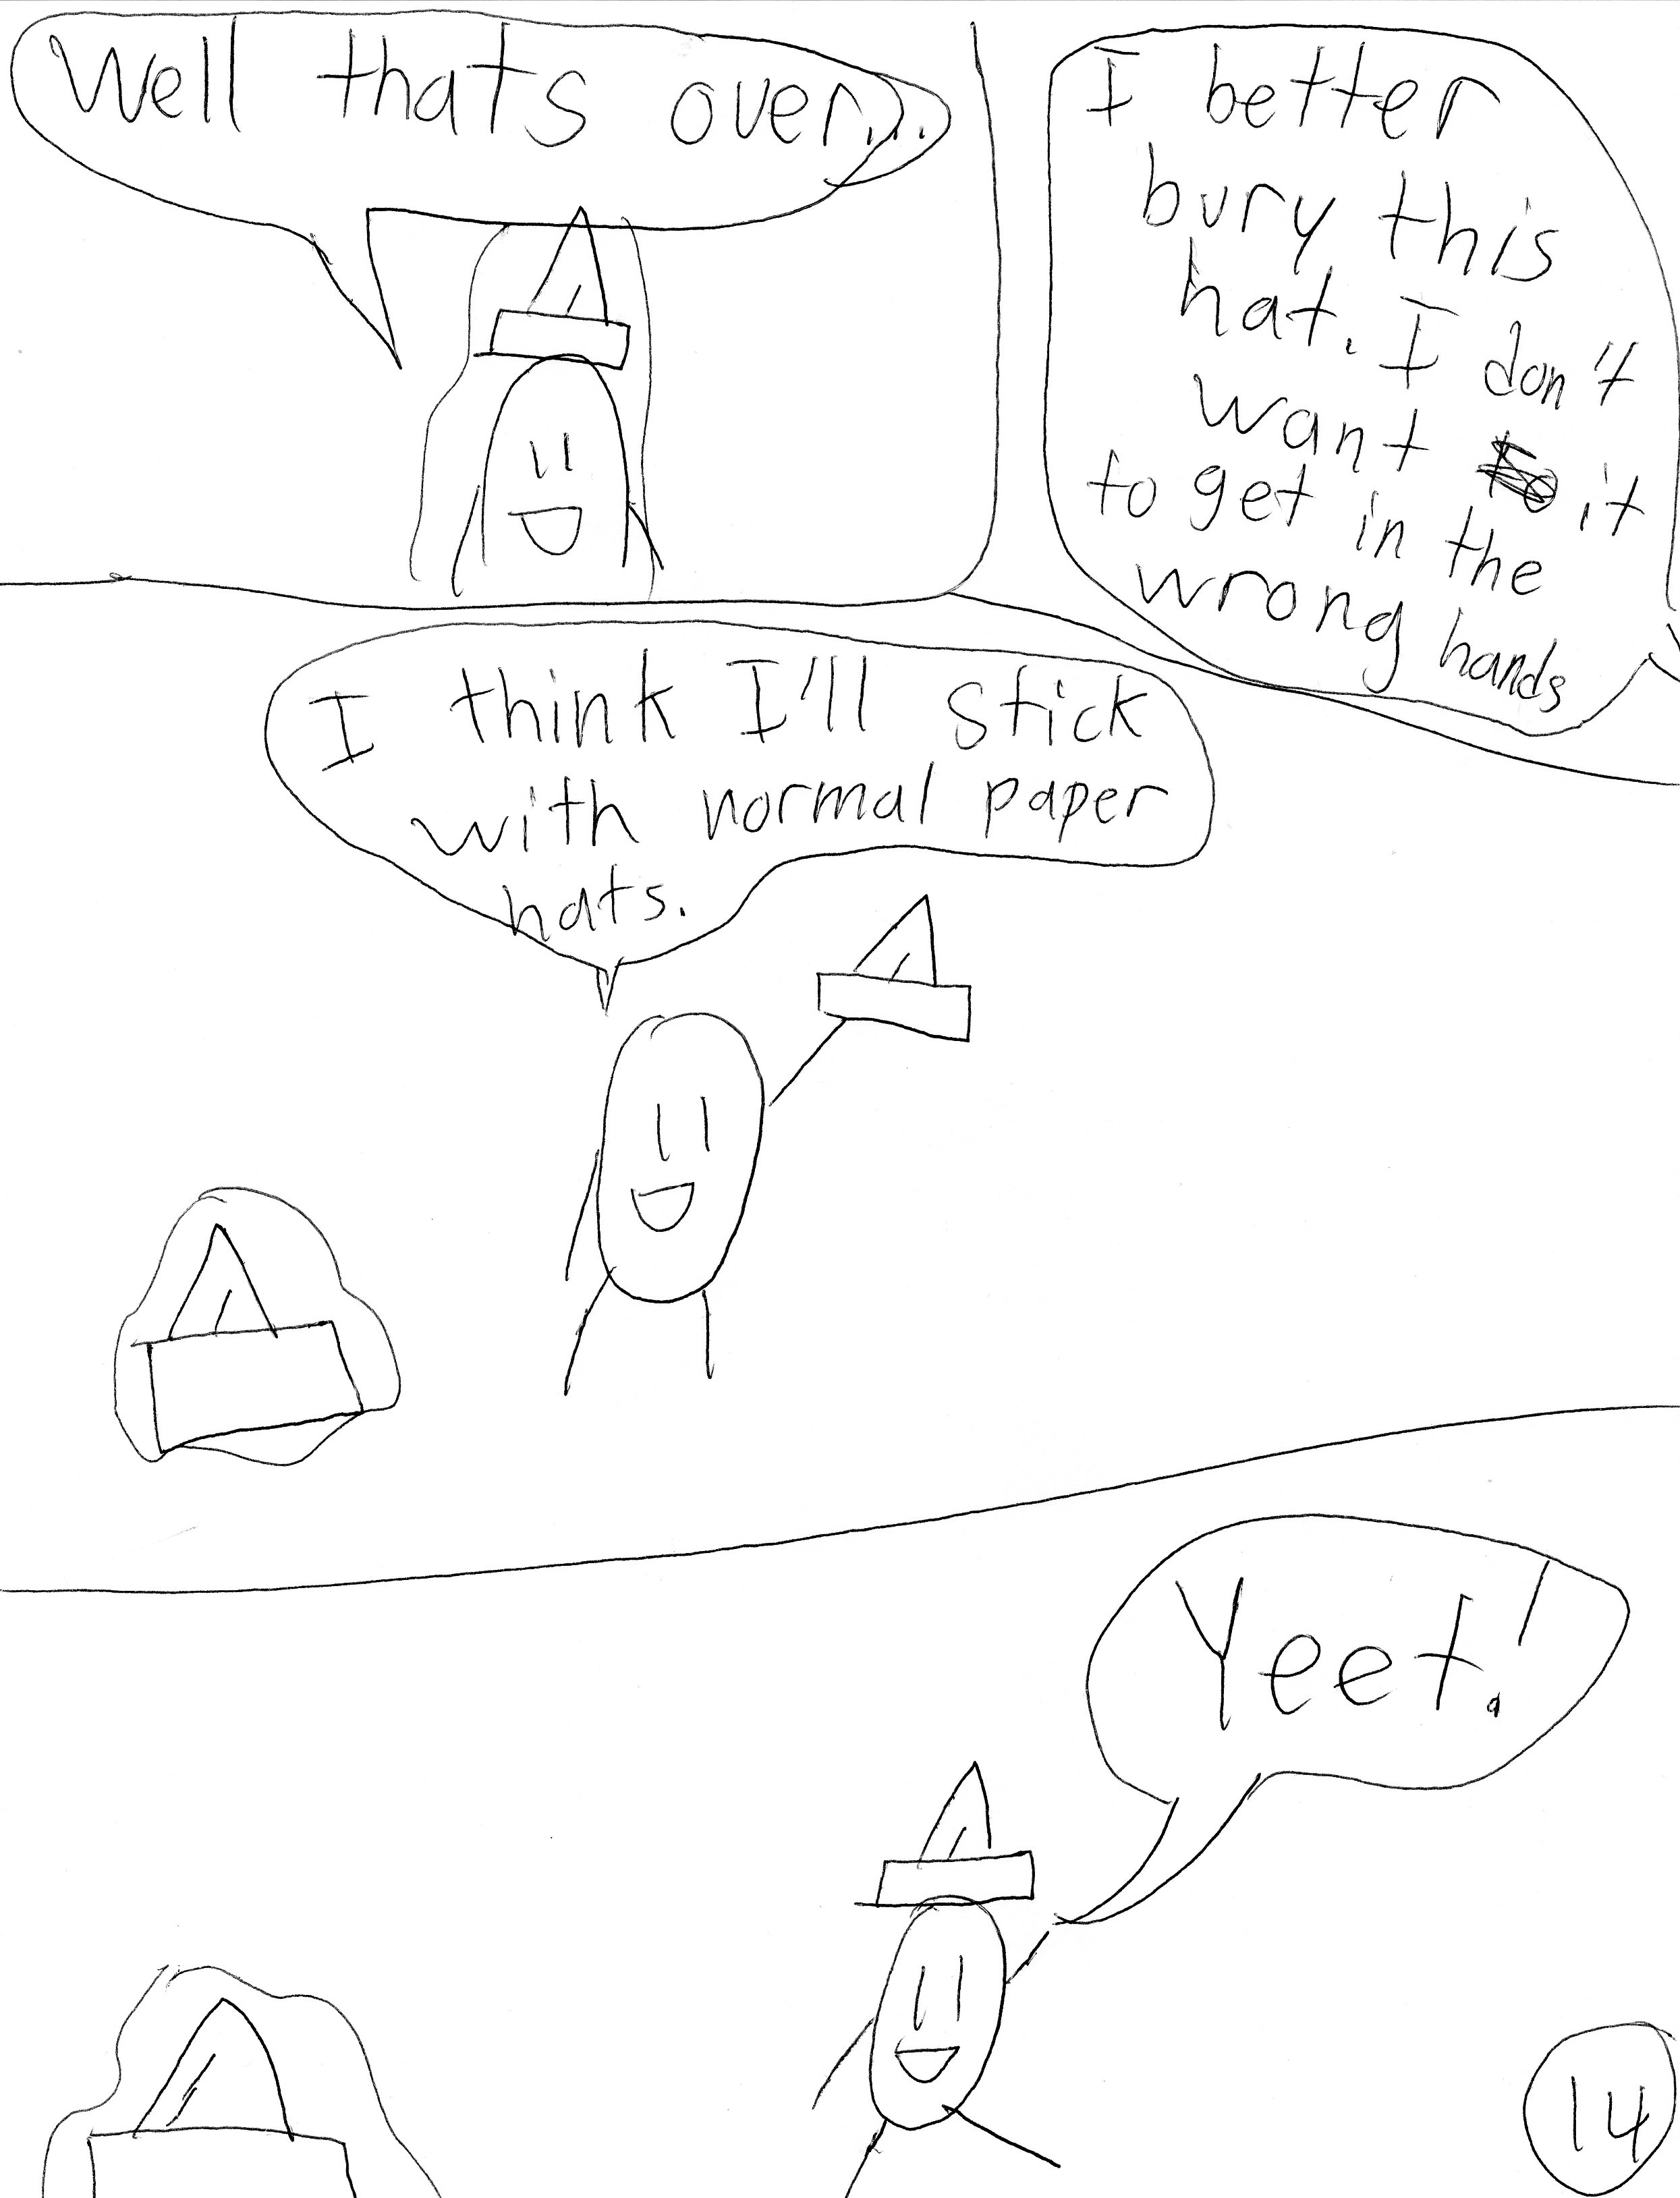 Well thats over...
I better
bury this
hat. I don't
want it
to get in the
wrong hands
I think I'll stick
with normal paper
hats.
Yeet!
14